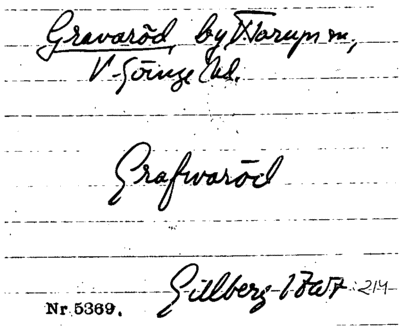 Gravaröd, by V. Torup sn,
V. Göinge hd.
Grafwaröd
Gillberg 1767 214
Nr 5369.